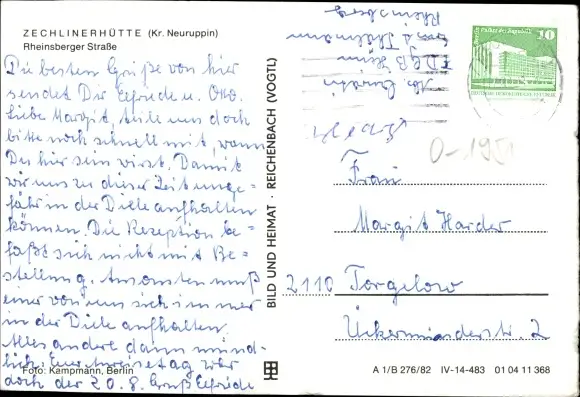 ZECHLINERHÜTTE (Kr. Neuruppin)
Rheinsberger Straße
Die besten Grüße von hier
sendet Dir Elfriede u. Otto.
Liebe Margit, teile uns doch
bitte noch schnell mit, wann
Du hier sein wirst. Damit
wir uns zu dieser Zeit unge=
fähr in der Diele aufhalten
können. Die Rezeption be=
faßt sich nicht mit Be=
stellung. Ansonsten muß
einer von uns sich immer
in der Diele aufhalten.
Alles andere dann münd=
lich. Euer Anreisetag wär
doch der 20.8. Gruß Elfriede
Foto: Kampmann, Berlin
BILD UND HEIMAT · REICHENBACH (VOGTL)
FDGB Heim
Ernst Thälmann
Rheinsberg
10
0-1951
Frau
Margit Harder
2110 Torgelow
Ückermünderstr. 2
A 1/B 276/82 IV-14-483 01 04 11 368